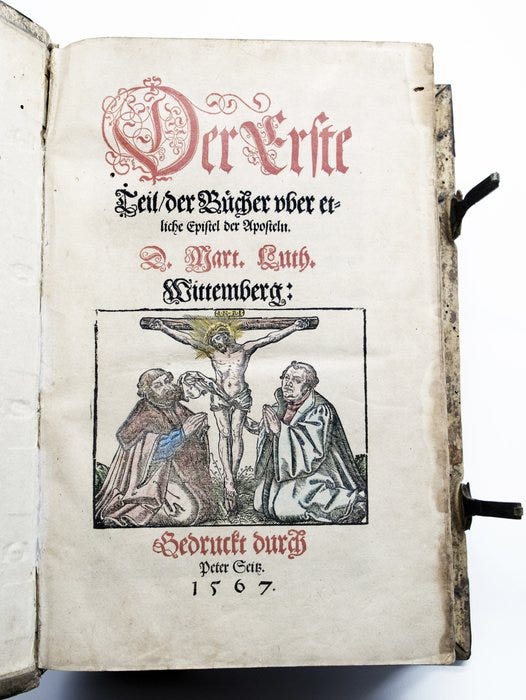 Der Erste
Teil/der Bücher vber et⸗
liche Epistel der Aposteln.
D. Mart. Luth.
Wittemberg:
I·N·R·I
Gedruckt durch
Peter Seitz.
1567.